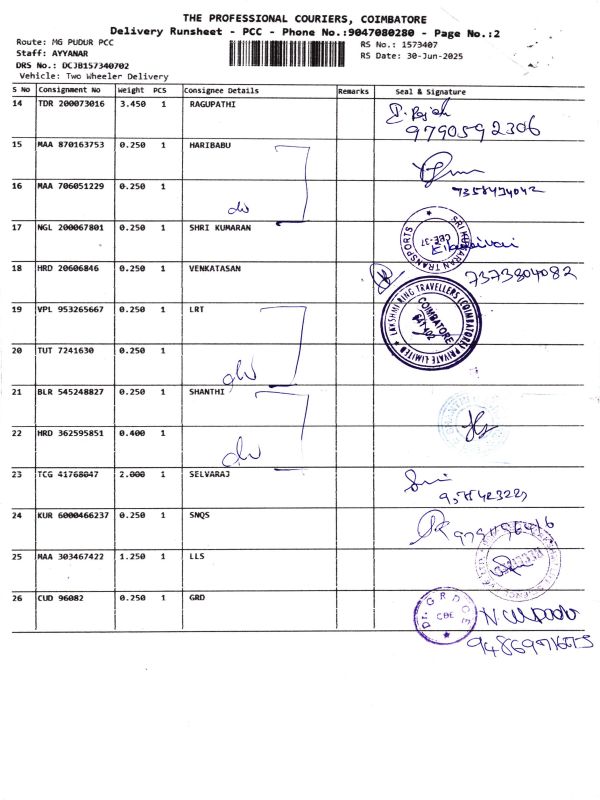 THE PROFESSIONAL COURIERS, COIMBATORE
Delivery Runsheet - PCC - Phone No.:9047080280 - Page No.:2
Route: MG PUDUR PCC
Staff: AYYANAR
DRS No.: DCJB157340702
Vehicle: Two Wheeler Delivery
RS No.: 1573407
RS Date: 30-Jun-2025
S No Consignment No Weight PCS Consignee Details Remarks Seal & Signature
14 TDR 200073016 3.450 1 RAGUPATHI
9790592306
15 MAA 870163753 0.250 1 HARIBABU
16 MAA 706051229 0.250 1
7358494042
17 NGL 200067801 0.250 1 SHRI KUMARAN
SRI KUMARAN TRANSPORTS
CBE-37
18 HRD 20606846 0.250 1 VENKATASAN
7373804082
19 VPL 953265667 0.250 1 LRT
LAKSHMI RING TRAVELLERS (COIMBATORE) PRIVATE LIMITED
COIMBATORE
641 402
20 TUT 7241630 0.250 1
21 BLR 545248827 0.250 1 SHANTHI
22 HRD 362595851 0.400 1
23 TCG 41768047 2.000 1 SELVARAJ
24 KUR 6000466237 0.250 1 SNQS
25 MAA 303467422 1.250 1 LLS
26 CUD 96082 0.250 1 GRD
Dr. G R D C E
CBE